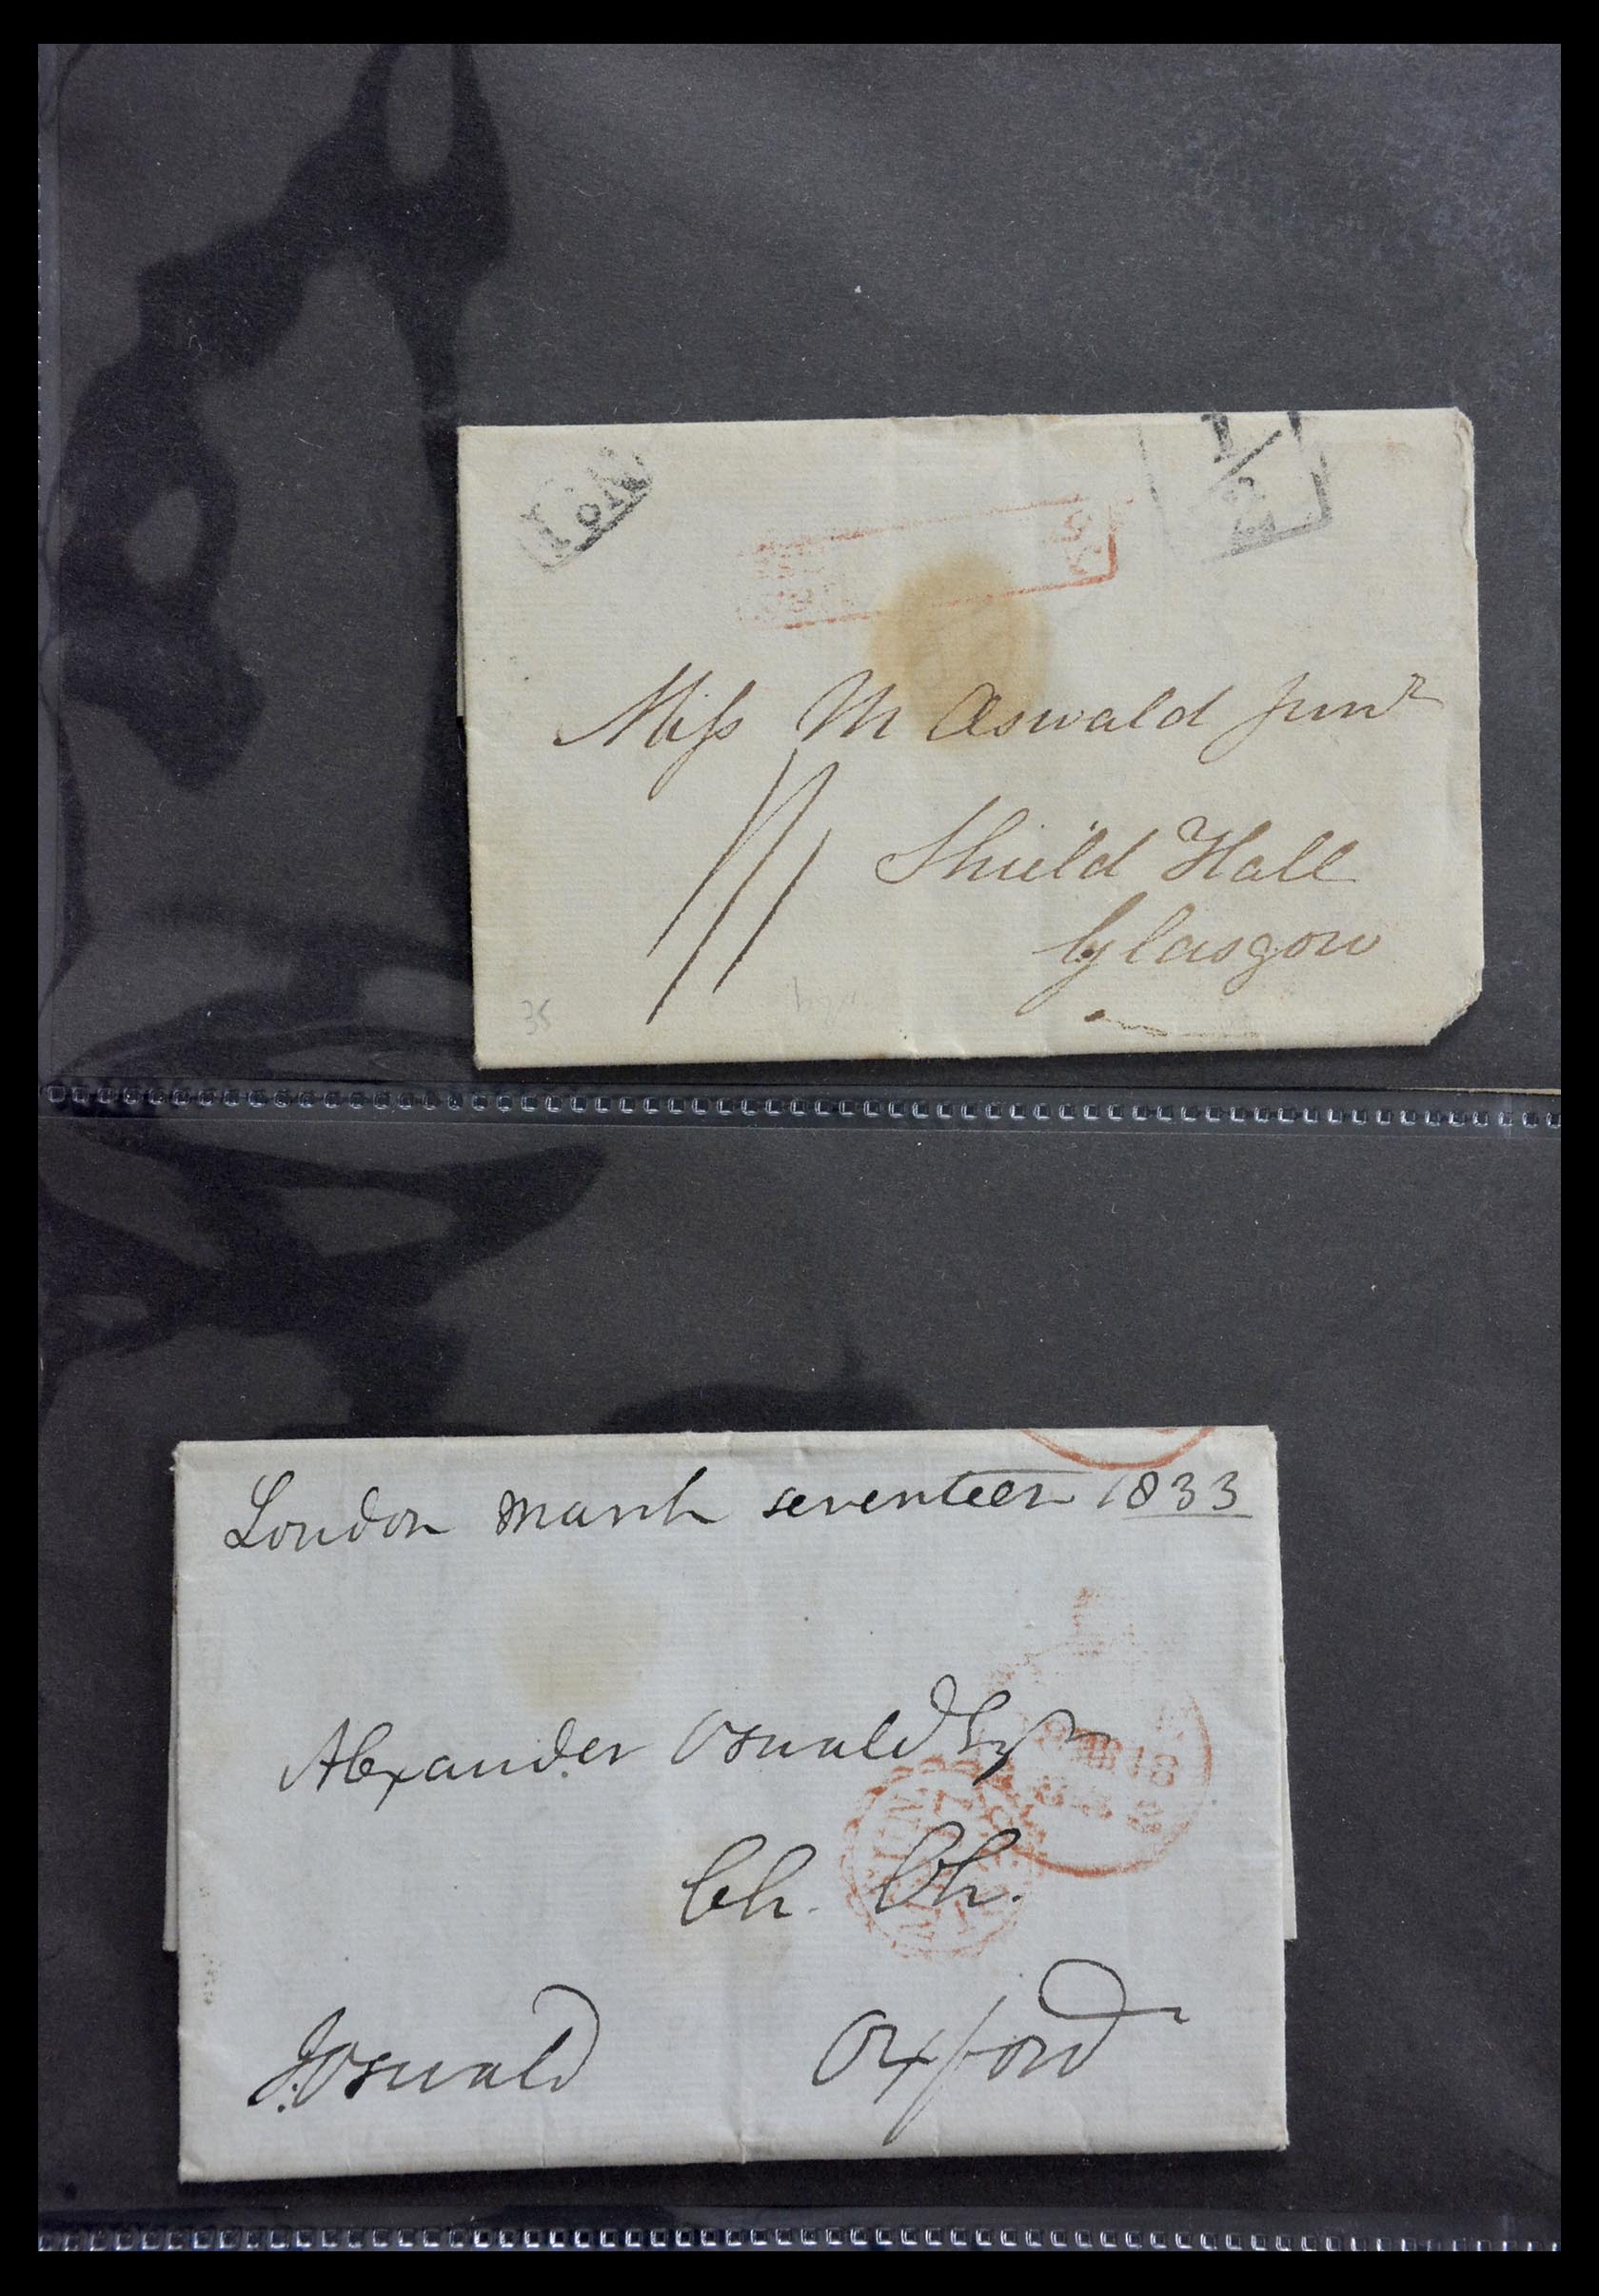 1/2
Miss M Oswald Junr
Shield Hall
Glasgow
35
London March seventeen 1833
Alexander Oswald Esqr
Ch. Ch.
J. Oswald Oxford